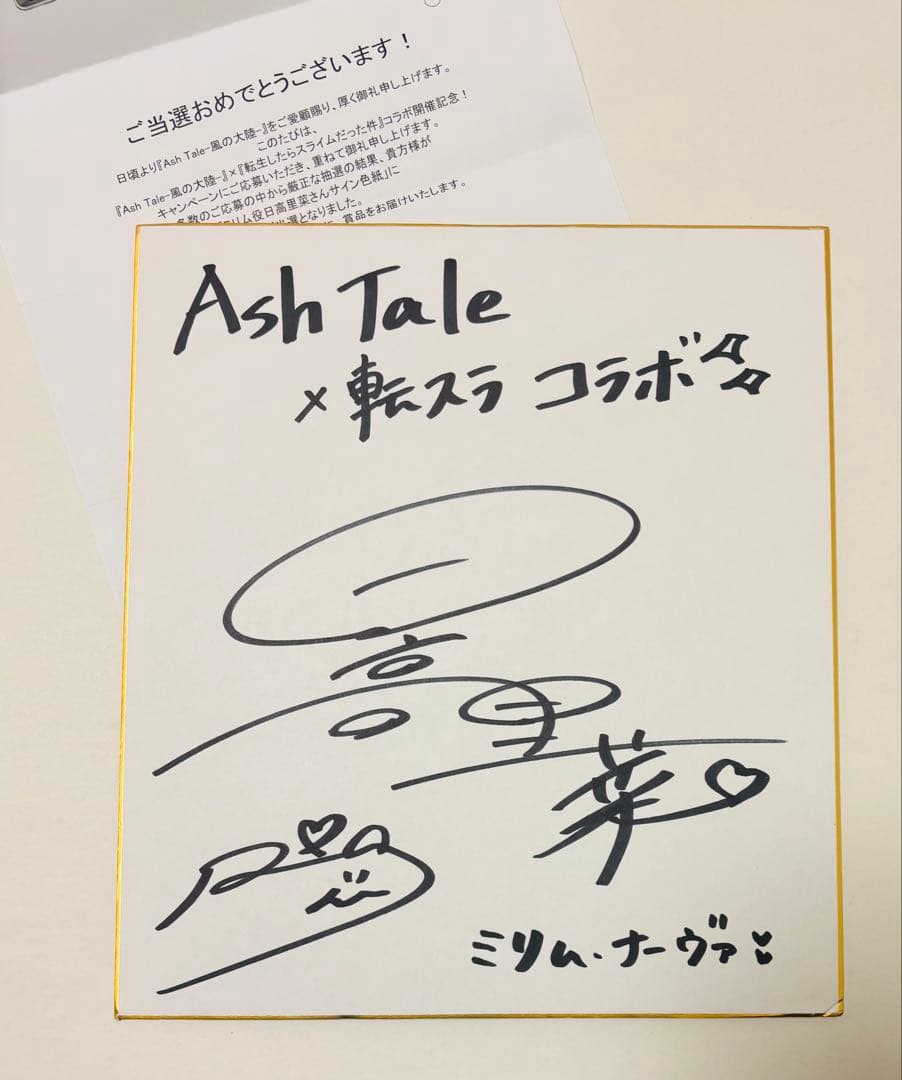 ご当選おめでとうございます！
日頃より『Ash Tale-風の大陸-』をご愛顧賜り、厚く御礼申し上げます。
このたびは、
『Ash Tale-風の大陸-』×『転生したらスライムだった件』コラボ開催記念！
キャンペーンにご応募いただき、重ねて御礼申し上げます。
多数のご応募の中から厳正な抽選の結果、貴方様が
リム役日高里菜さんサイン色紙」に
当選となりました。
賞品をお届けいたします。
Ash Tale
×転スラ コラボ
日高里菜
ミリム・ナーヴァ